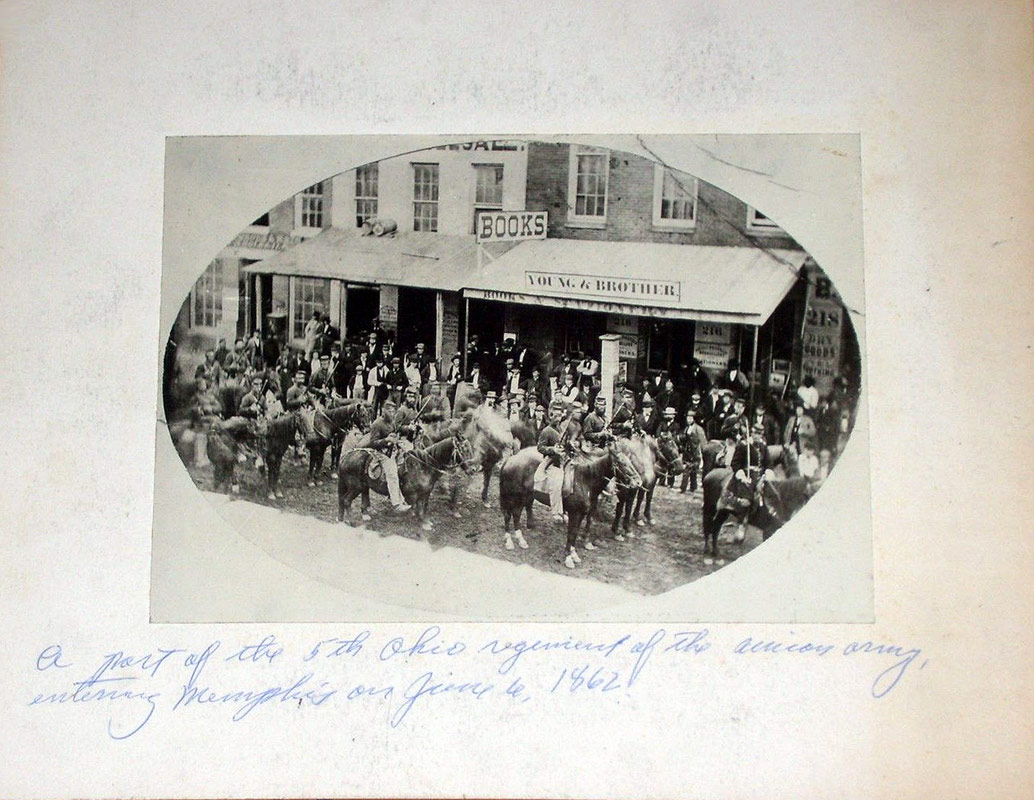 BOOKS
YOUNG & BROTHER
BOOKS & STATIONERY
216
216
218
DRY
GOODS
A part of the 5th Ohio regiment of the union army,
entering Memphis on June 6, 1862.